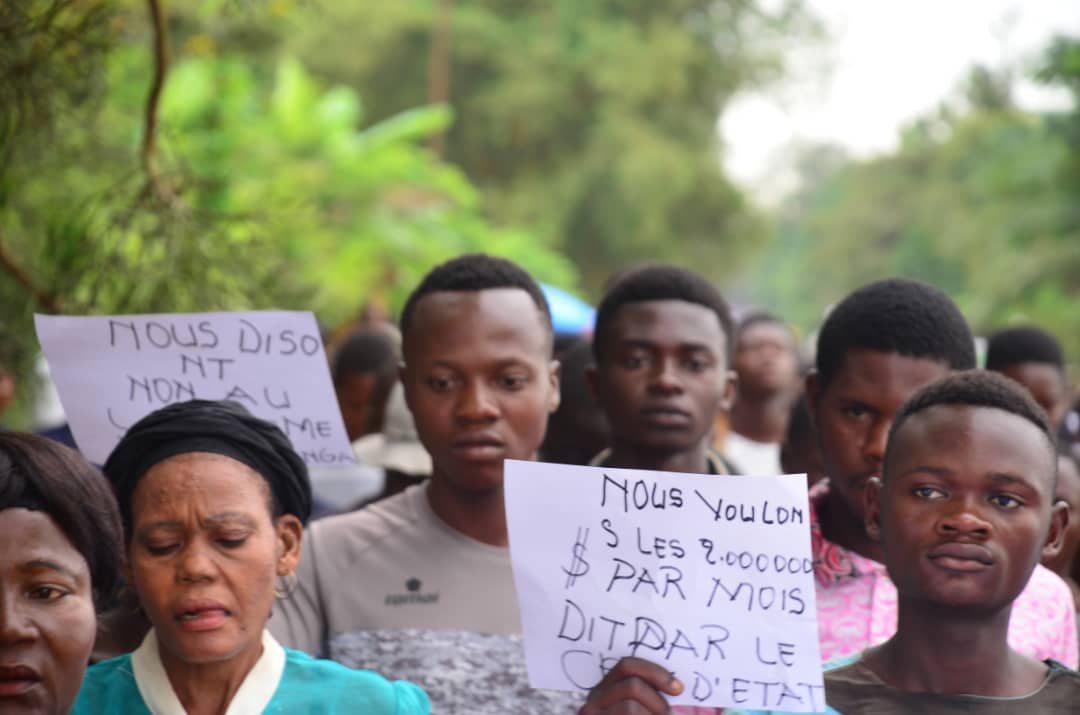 NOUS DISO
NT
NON AU
ME
NGA
NOUS VOULON
S LES 2.000000
$ PAR MOIS
DIT PAR LE
D'ETAT